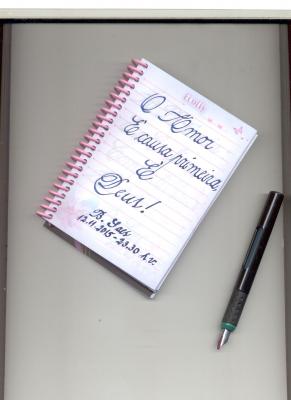 O Amor
É causa primeira
É
Deus!
12.11.2015-23.30 h.v.